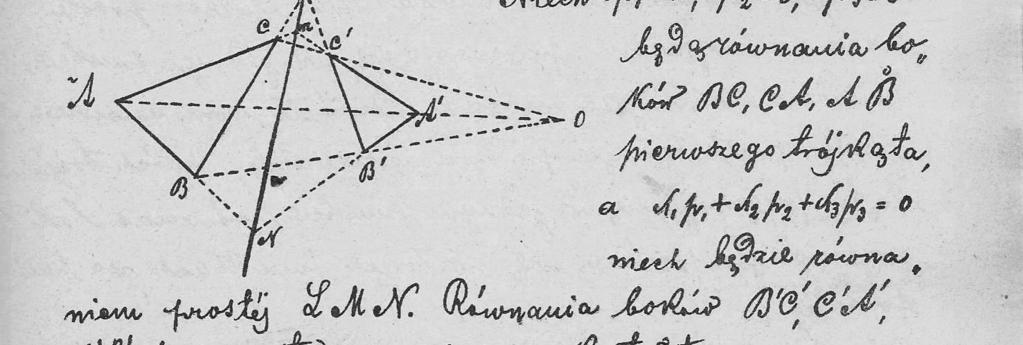 Niech
będą równania bo„
ków BC, CA, AB
pierwszego trójkąta,
a λ₁p₁ + λ₂p₂ + λ₃p₃ = 0
niech będzie równa„
niem prostéj LMN. Równania boków B'C', C'A',
C
m
C'
A
A'
O
B
B'
N